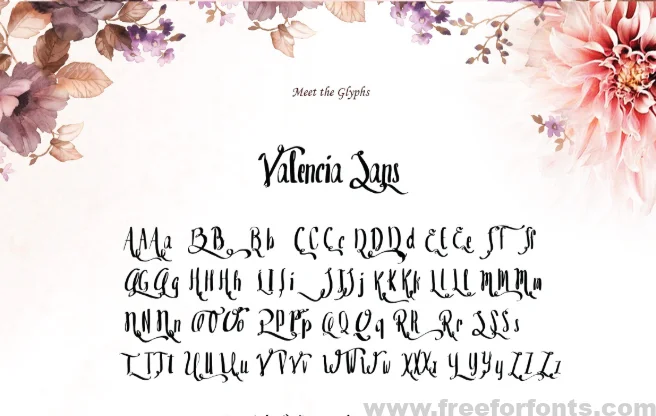 Meet the Glyphs
Valencia Sans
AAAa BBBb CCCc DDDd EEEe FFFf
GGGg HHHh IIIi JJJj KKKk LLLl MMMm
NNNn OOOo PPPp QQQq RRRr SSSs
TTTt UUUu VVVv WWWw XXXx YYYy ZZZz
www.freeforfonts.com